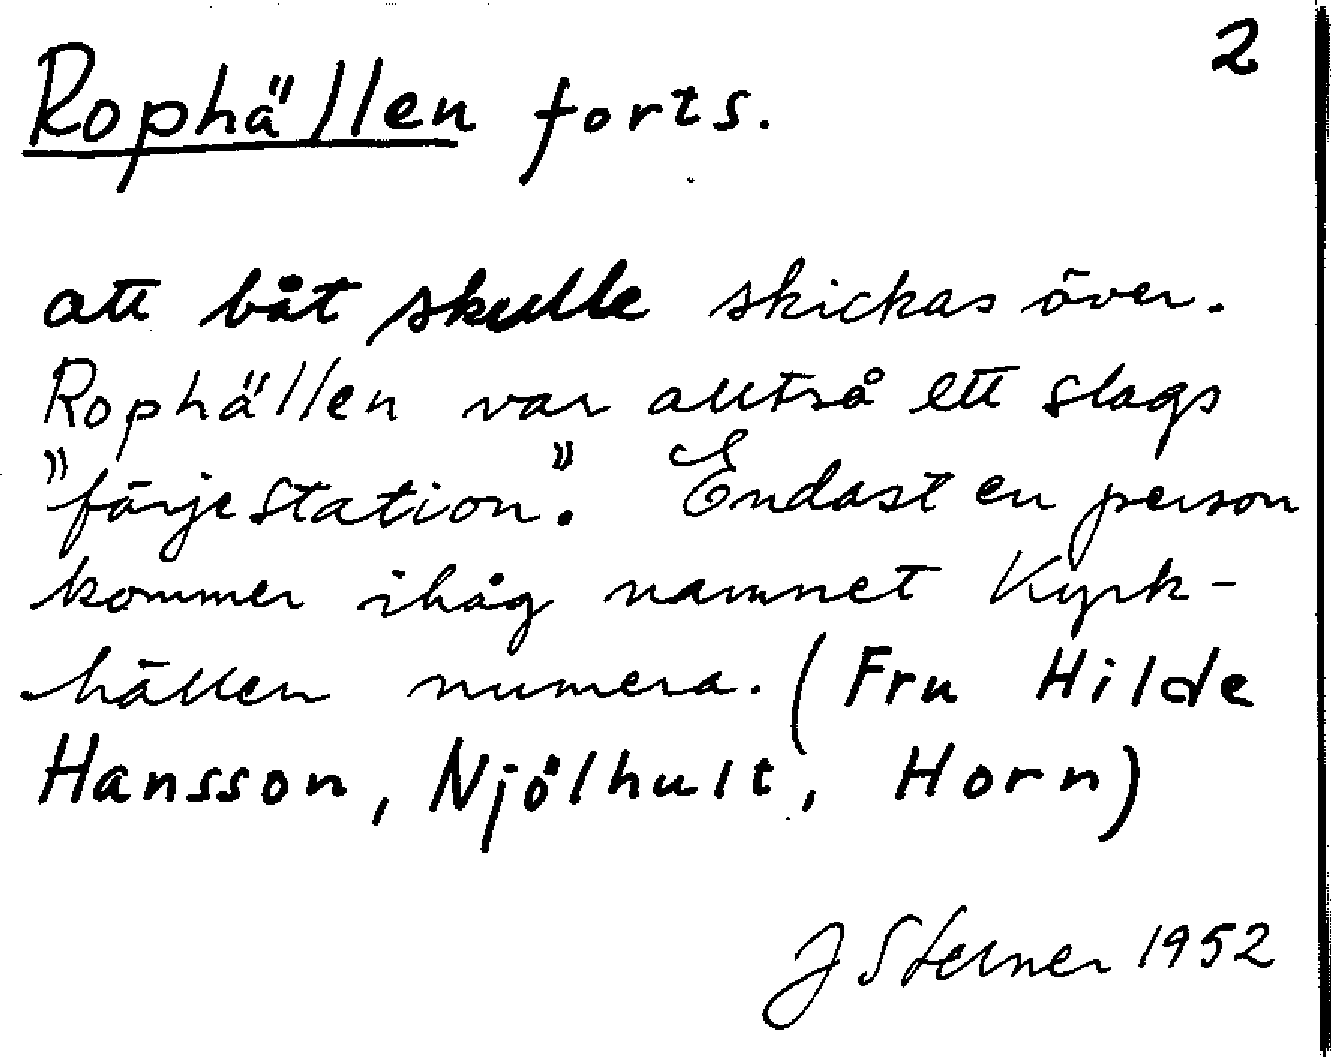 2
Rophällen forts.
att båt skulle skickas över.
Rophällen var alltså ett slags
"färjestation". Endast en person
kommer ihåg namnet Kyrk-
hällen numera. (Fru Hilde
Hansson, Njölhult, Horn)
J Sterner 1952